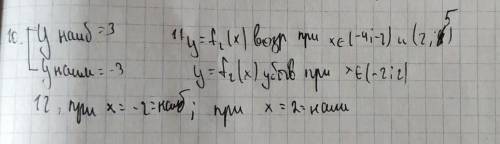 10. [ y наиб = 3 11 y = f₂(x) возр при x ∈ (-4; -2) и (2; 5)
y наим = -3 y = f₂(x) убыв при x ∈ (-2; 2)
12, при x = -2 = наиб; при x = 2 = наим